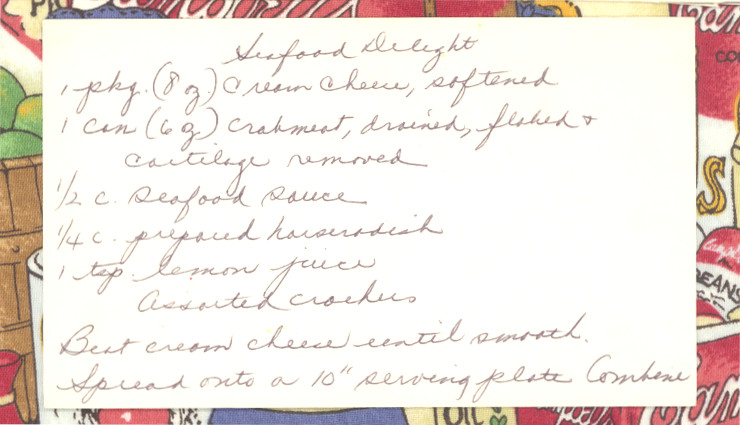 Seafood Delight
1 pkg. (8 oz) Cream Cheese, softened
1 can (6 oz) crabmeat, drained, flaked +
cartilage removed
1/2 c. seafood sauce
1/4 c. prepared horseradish
1 tsp. lemon juice
Assorted crackers
Beat cream cheese until smooth.
Spread onto a 10" serving plate Combine
S
BEANS
OIL